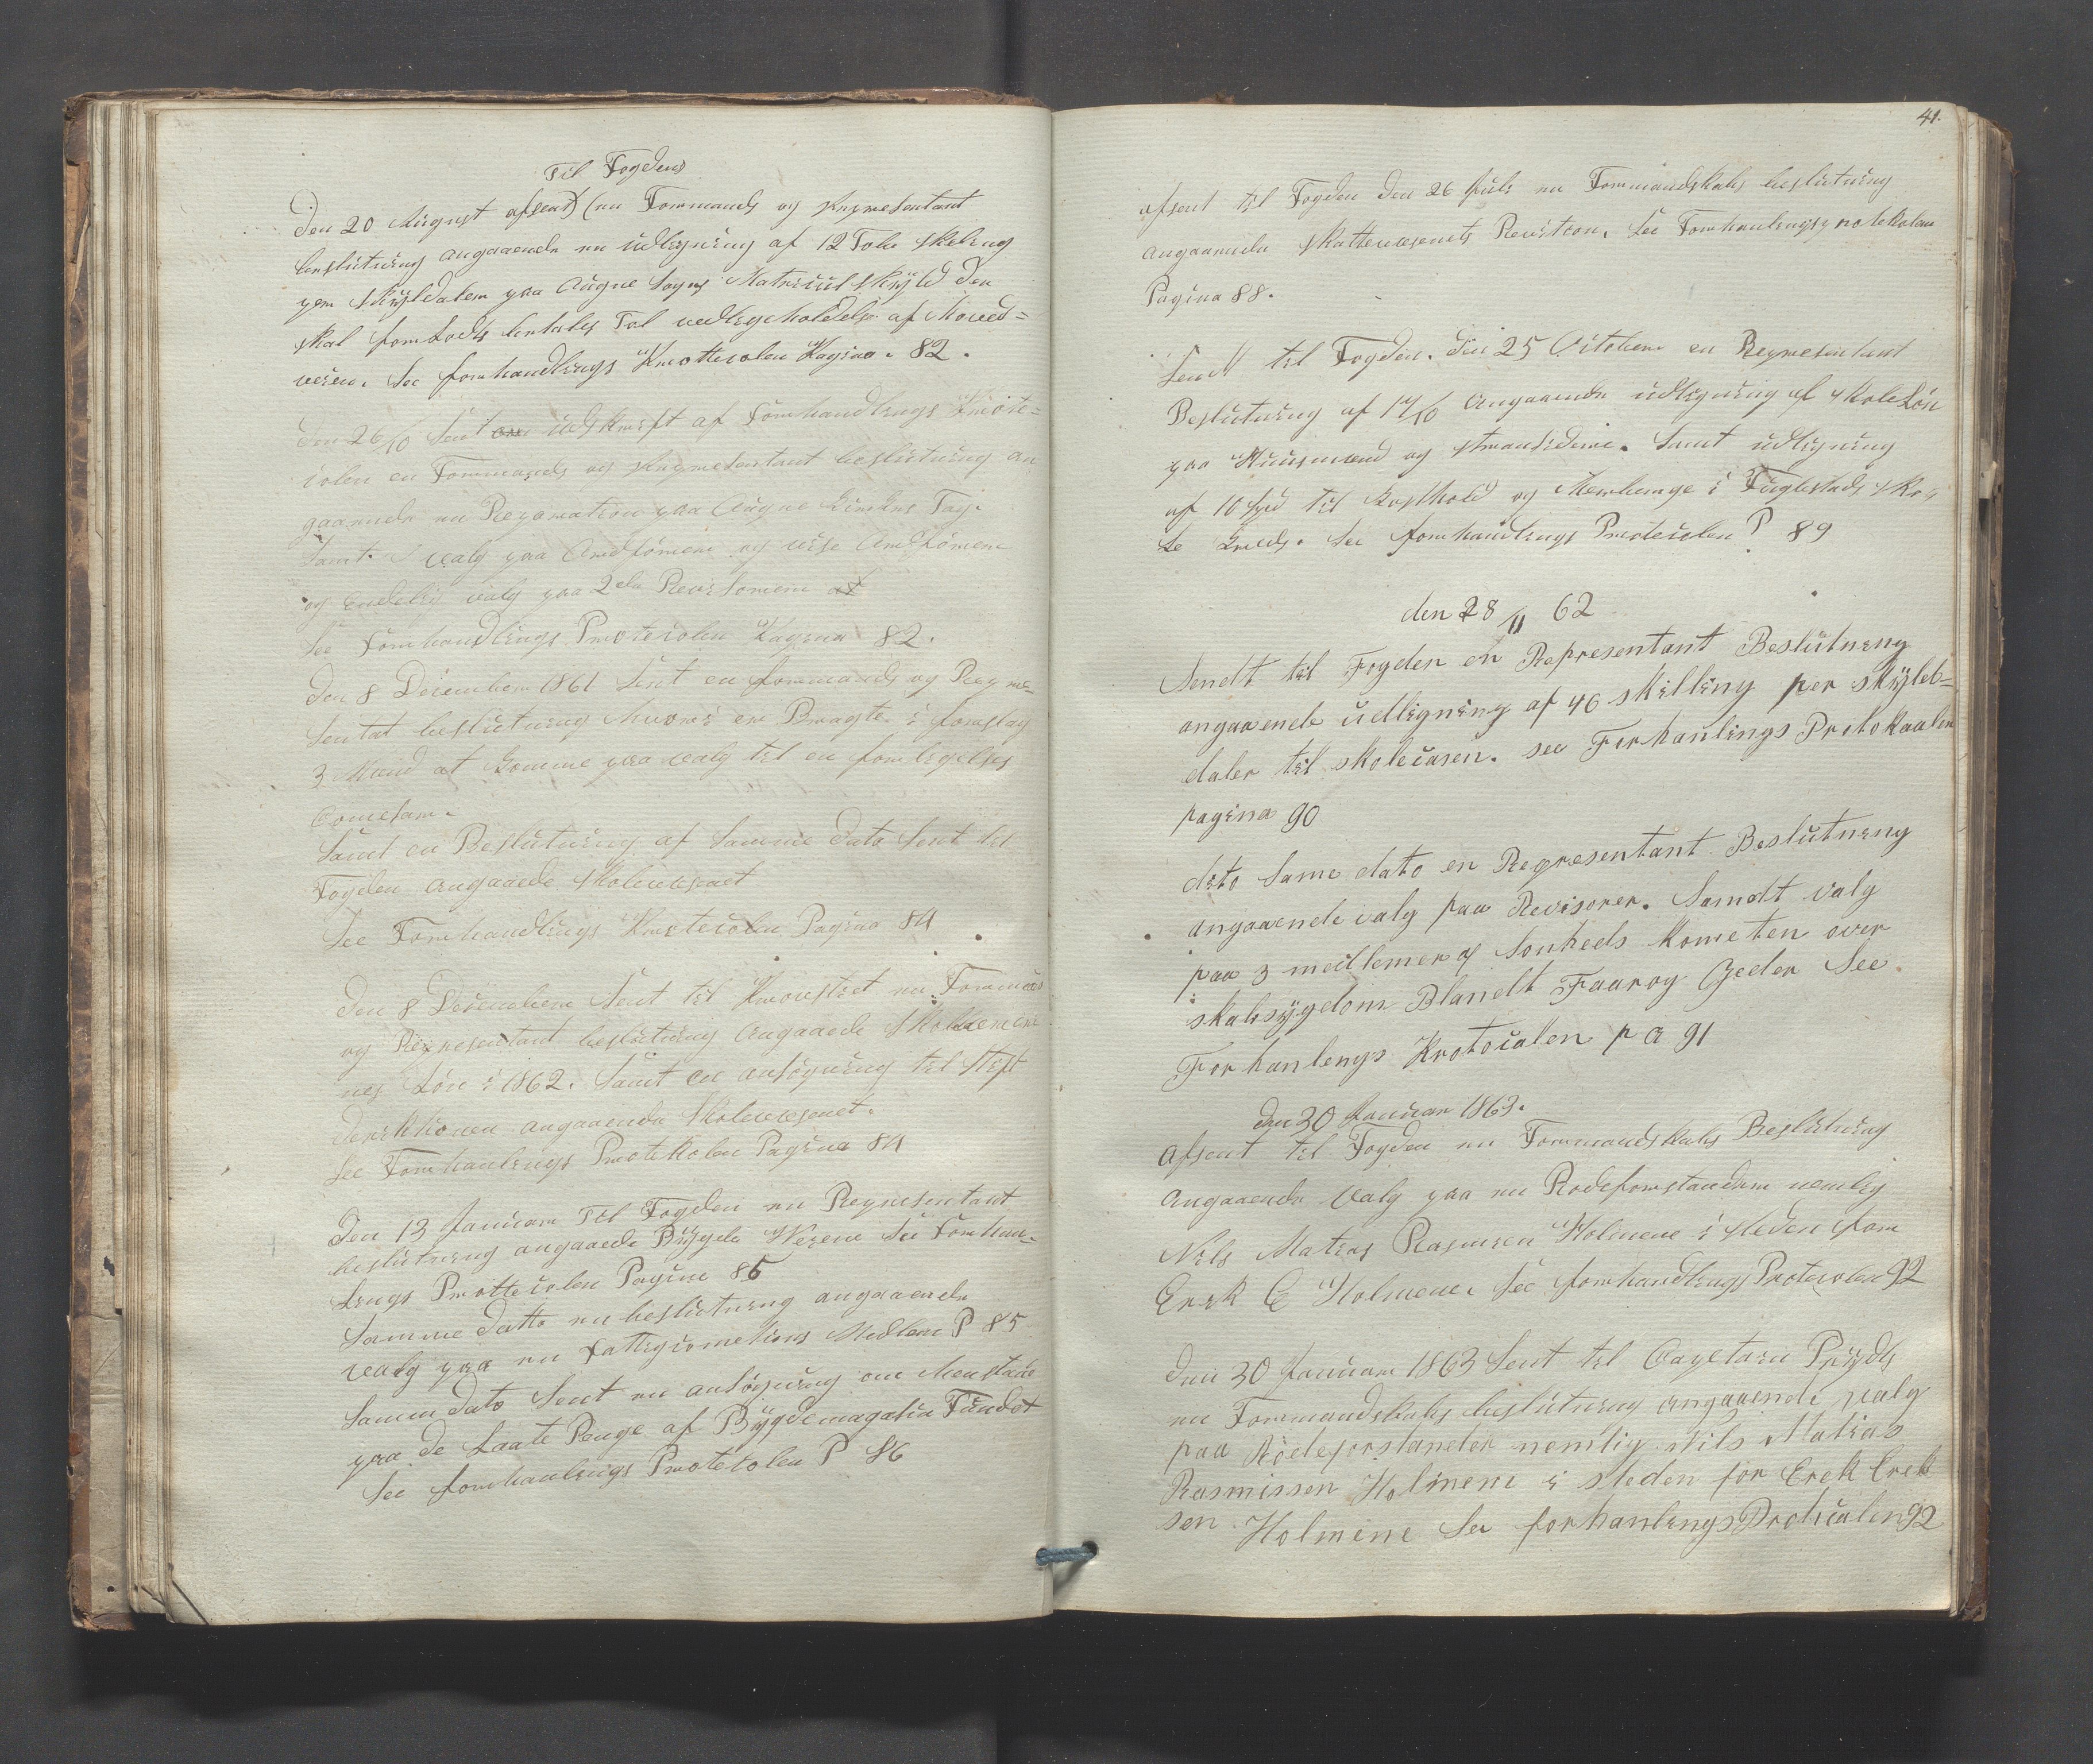 Til Fogden
Den 20 August afsent (en Formands og Representant
beslutning angaaende en udligning af 12 Tolv skeling
per skyldaler paa Augne Sogns Matriculskyld den
skal forlods betales Tol vedligeholdelse af Hoved=
veien. See forhandlings Protterolen Pagina. 82.
Den 26/10 Sent udskrift af Forhandlings Prote=
colen en Formands og Representant beslutning an
gaaende en Reparation paa Augne Kirkes Tag.
Samt. valg paa Ordførere og vise Ordførere
og Endelig valg paa 2de Revisorere
See Forhandlings Protecolen Pagina 82.
Den 8 December 1861 Sent en formands og Repre-
sentat beslutning hvori er Bragte i forslag
3 Mænd at komme paa valg til en forligelses
Comesær.
Samt en Beslutning af Samme Dato Sent til
Fogden angaaede skolevesenet
See Forhandlings Protecolen Pagina 84
Den 8 December Sent til Provstiet en Formands
og Representant beslutning angaaede Skolelærer
nes Løn i 1862. Samt en ansøgning til Stift
Derektionen angaaende Skolevesenet.
See Forhanlings Protekolen Pagina 84
Den 13 Januar Til Fogden en Representant
beslutning angaaede Bygde Veiene See Forhan-
lings Prottecolen Pagina 85
Samme Datto en beslutning angaaende
valg paa en fattigcometions Medlem P 85
Samme Dato Sent en ansøgning om
paa de Laante Penge af Bygdemagasin Fundet
See forhanlings Protekolen P 86
41.
afsent til Fogden den 26 Juli en Formandskabs beslutning
angaaende skattevesenets Revition. See Forhanlingsprotekolen
Pagina 88.
Sendt til Fogden. Den 25 October en Representant
Beslutning af 14/10 angaaende udligning af skoleLøn
paa Huusmænd og stransidere. Samt udligning
af 10 spd til Kosthold og Herberge i Fuglestads sko-
le Kreds. See forhandlings Protecolen P 89
den 28/11 62
Sendt til Fogden en Representant Beslutning
angaaende udligning af 40 skilling per skyld=
daler til skolecasen. see Forhanlings Protokaalen
pagina 90
dito Same dato en Representant Beslutning
angaaende valg paa Revisorer. Samdt valg
paa 3 medlemer af Sonheds Kometen over
skabsygdom Blandt Faar og Geder See
Forhanlengs Protocallen pa 91
den 30 Januar 1863.
Afsent til Fogden en Formandskabs Beslutning
angaaende valg paa en Rodeforstander nemlig
Nils Matias Rasmusen Holmene i steden for
Erik E Holmene. See forhandlings Protecolen 92
Den 30 Januar 1863 Sent til Capetain Pryds
en Formandskabs beslutning angaaende valg
paa Rodeforstander nemlig Nils Matias
Rasmissen Holmene i steden for Erek Erek
sen Holmene See forhanlengs Protocalen 92